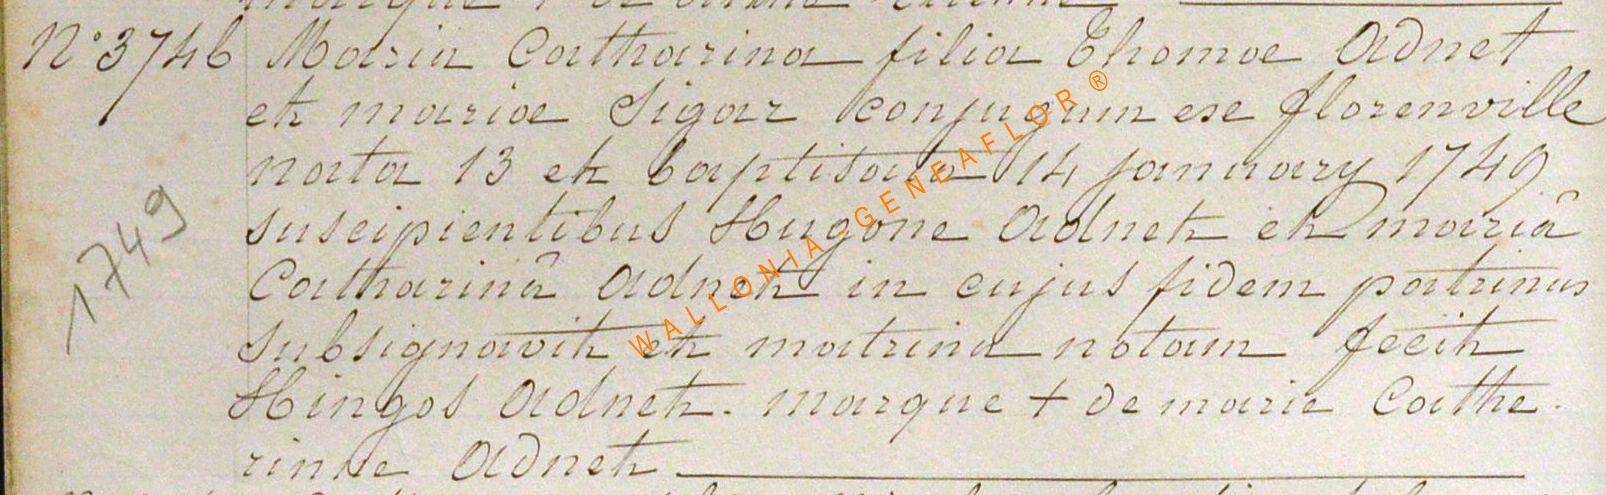 N° 3746 Maria Catharina filia Thomae Adnet
et mariae Sigar conjugum ex florenville
nata 13 et baptisata 14 january 1749
suscipientibus Hugone Adnet et mariâ
Catharinâ Adnet in cujus fidem patrinus
subsignavit et matrina notam fecit
Hingos Adnet. marque + de marie Cathe.
rinne Adnet
1749
WALLONIA-GENEAFLOR®